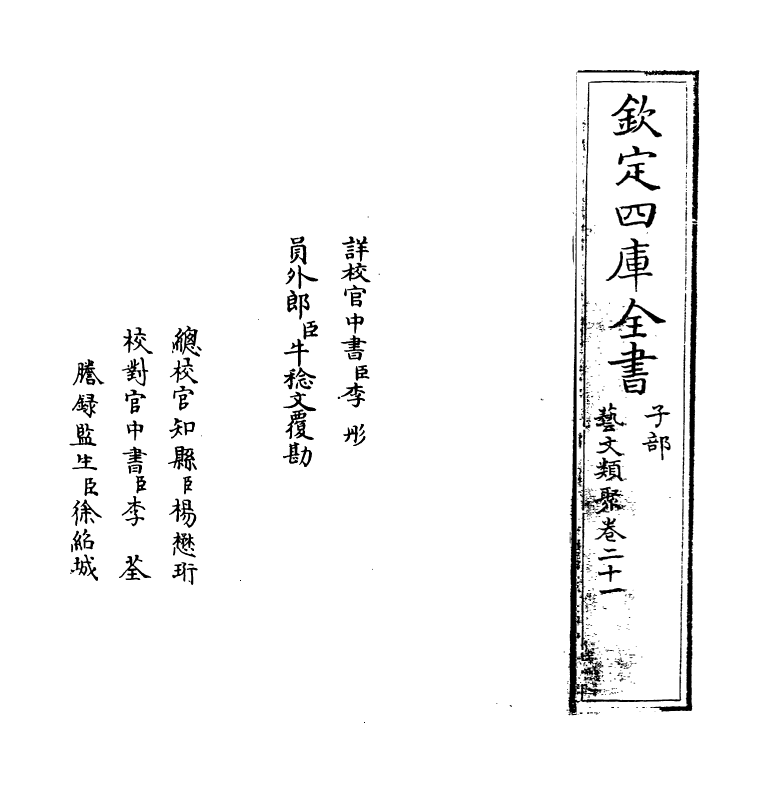 欽定四庫全書
子部
藝文類聚卷二十一
詳校官中書臣李彤
員外郎臣牛稔文覆勘
總校官知縣臣楊懋珩
校對官中書臣李荃
謄録監生臣徐紹城